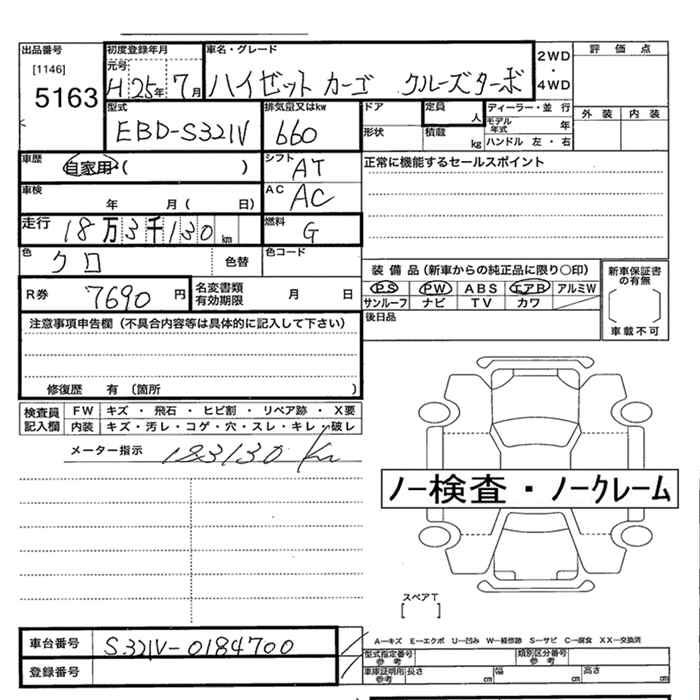 出品番号 初度登録年月 車名・グレード 2WD ・ 4WD 評価点
[1146] 元号
5163 H25年7月 ハイゼットカーゴ クルーズターボ
型式 排気量又はkw ドア 定員 人 ディーラー・並行 外装 内装
モデル年式 年
EBD-S321V 660 形状 積載 kg ハンドル 左・右
車歴 自家用・( ) シフト AT 正常に機能するセールスポイント
車検 年 月( 日) AC AC
走行 18万3千130km 燃料 G
色 クロ 色替 色コード
装備品(新車からの純正品に限り○印) 新車保証書の有無
R券 7690円 名変書類有効期限 月 日 PS PW ABS エアB アルミW
サンルーフ ナビ TV カワ 車載不可
注意事項申告欄(不具合内容等は具体的に記入して下さい) 後日品
修復歴 有 (箇所 )
検査員記入欄 FW キズ・飛石・ヒビ割・リペア跡・X要
内装 キズ・汚レ・コゲ・穴・スレ・キレ・破レ
メーター指示 183130 Km
ノー検査・ノークレーム
スペアT
[ ]
車台番号 S321V-0184700 A—キズ E—エクボ U—凹み W—補修跡 S—サビ C—腐食 XX—交換済
型式指定番号 参考 類別区分番号 参考
登録番号 車庫証明用 参考 長さ cm 幅 cm 高さ cm